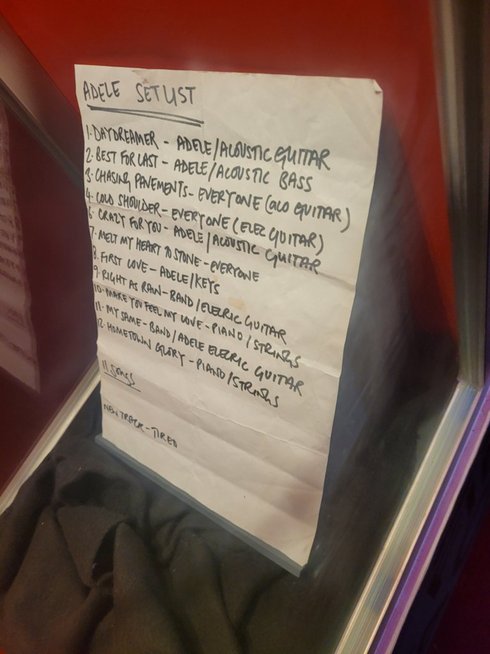 ADELE SETLIST
1. DAYDREAMER - ADELE/ACOUSTIC GUITAR
2. BEST FOR LAST - ADELE/ACOUSTIC BASS
3. CHASING PAVEMENTS - EVERYONE (ACO GUITAR)
4. COLD SHOULDER - EVERYONE (ELEC GUITAR)
6. CRAZY FOR YOU - ADELE/ACOUSTIC GUITAR
7. MELT MY HEART TO STONE - EVERYONE
8. FIRST LOVE - ADELE/KEYS
9. RIGHT AS RAIN - BAND/ELECRIC GUITAR
10. MAKE YOU FEEL MY LOVE - PIANO/STRINGS
11. MY SAME - BAND/ADELE ELECRIC GUITAR
12. HOMETOWN GLORY - PIANO/STRINGS
11 SONGS
NEW TRACK - TIRED